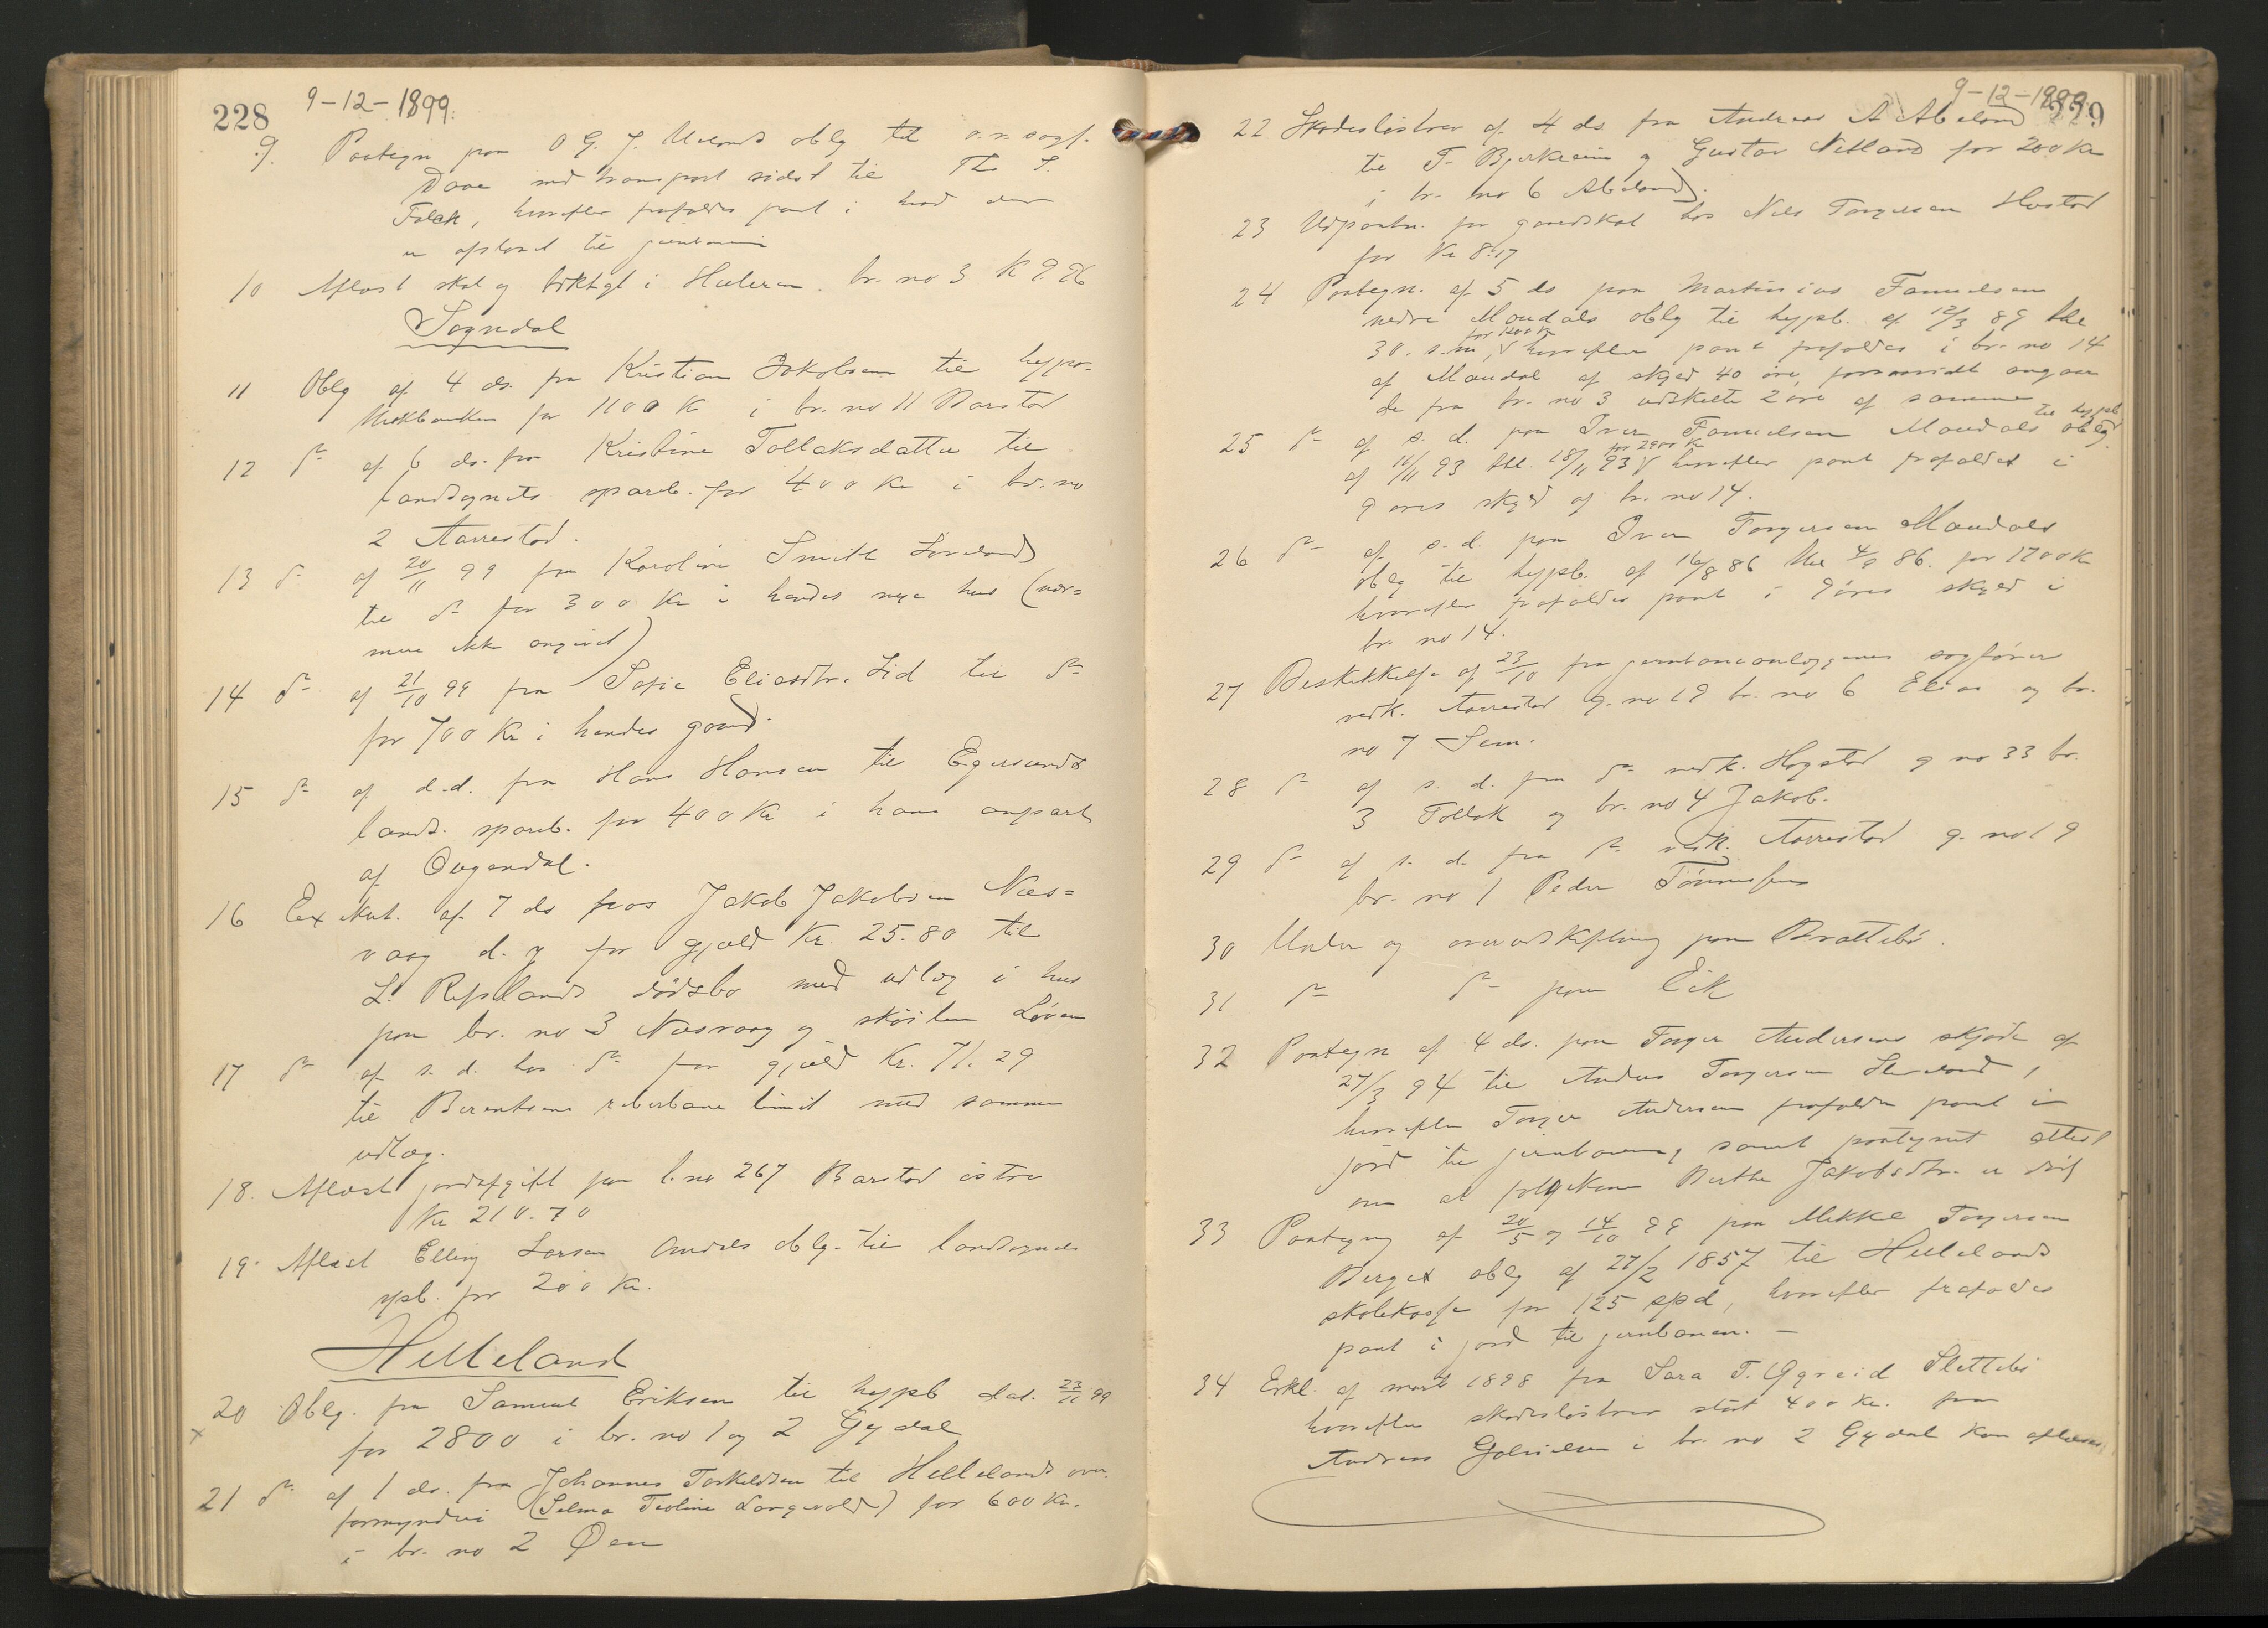 228 9-12-1899.
9. Paategn paa O G. J. Uelands oblg til o.r.sagf.
Daae med transport sidst til Th. S.
Falck, hvorefter frafaldes pant i hvad der
er afstaaet til jernbanen
10 Aflæst skal og bikthgl i Hæleren. br. no 3 K 9.96
Sogndal
11 Oblg af 4 ds. fra Kristian Jakobsen til hypo-
thekbanken for 1100 Kr i br. no 11 Barstad
12 do af 6 ds. fra Kristine Tollaksdatter til
landsognets spareb. for 400 Kr i br. no
2 Aarrestad.
13 do af 20/11 99 fra Karoline Smith Løvland
til do for 300 Kr i hendes nye hus (nær=
mere ikke angivet)
14 do af 21/10 99 fra Sofie Eliasdtr. Lid til do
for 700 Kr i hendes gaard.
15 do af d.d. fra Hans Hansen til Egersunds
lands. spareb. for 400 Kr i hans anpart
af Ougendal.
16 Exekut. af 7 ds hos Jakob Jakobsen Næs=
vaag d. y for gjæld Kr. 25.80 til
L. Refslands dødsbo med udlæg i hus
paa br. no 3 Næsvaag og skøiten Løven
17 do af s. d. hos do for gjæld Kr. 71.29
til Berentsens reberbane limit med samme
udlæg.
18. Aflæst jordafgift paa l. no 267 Barstad østre
Kr 210.70
19. Aflæst Elling Larsen Amdals oblg. til landsognets
spb. for 200 Kr.
Helleland
20 Oblg. fra Samuel Eriksen til hypb dat. 23/11 99
x for 2800 i br. no 1 og 2 Gydal
21 do af 1 ds. fra Johannes Torkeldsen til Hellelands over-
formynderi (Selma Teoline Langevald) for 600 Kr.
i br. no 2 Øen
9-12-1899. 229
22 Skadesløsbrev af 4 ds fra Andreas A Abeland
til T. Bjerkreim og Gustav Netland for 200 Kr
i br. no 6 Abeland.
23 Udpantn. for gaardskat hos Nils Torgersen Hustad
for Kr 8.17
24 Paategn. af 5 ds paa Martinius Samuelsen
nedre Mondals oblg til hypb. af 12/3 89 thl
for 1200 Kr
30. s.m, hvorefter pant frafaldes i br. no 14
af Maudal af skyld 40 øre, forsaavidt angaar
de fra br. no 3 udskilte 2 øre af samme
25 do af s. d. paa Iver Samuelsen Maudals oblg til hypb
af 11/11 93 thl. 18/11 93 for 2900 Kr hvorefter pant frafaldes i
9 øres skyld af br. no 14.
26 do af s. d. paa Iver Torgersen Maudals
oblg til hypb. af 16/8 86 thl 4/9 86. for 1700 Kr
hvorefter frafaldes pant i 9 øres skyld i
br. no 14.
27 Beskikkelse af 23/10 fra jernbaneanlæggenes sagfører
vedk. Aarrestad g. no 19 br. no 6 Elias og br.
no 7 Sem.
28 do af s. d. fra do vedk. Hogstad g no 33 br.
3 Tollak og br. no 4 Jakob.
29 do af s. d. fra do vedk. Aarrestad g. no 19
br. no 1 Peder Tønnesen
30 Under og overudskiftning paa Brattebø.
31 do do paa Eik
32 Paategn af 4 ds. paa Torger Andersens skjøde af
27/3 94 til Anders Torgersen Sleveland,
hvorefter Torger Andersen frafalder pant i
jord til jernbanen, samt paategnet attest
om at folgekone Berthe Jakobsdtr. er død
33 Paategn af 20/5 og 14/10 99 paa Mikkel Torgersen
Berget oblg af 27/2 1857 til Hellelands
skolekasse for 125 spd, hvorefter frafaldes
pant i jord til jernbanen. -
34 Erkl. af marts 1898 fra Sara T. Ygreid Slettebø
hvorefter skadesløsbrev stort 400 Kr. fra
Andreas Gabrielsen i br. no 2 Gydal kan aflæses